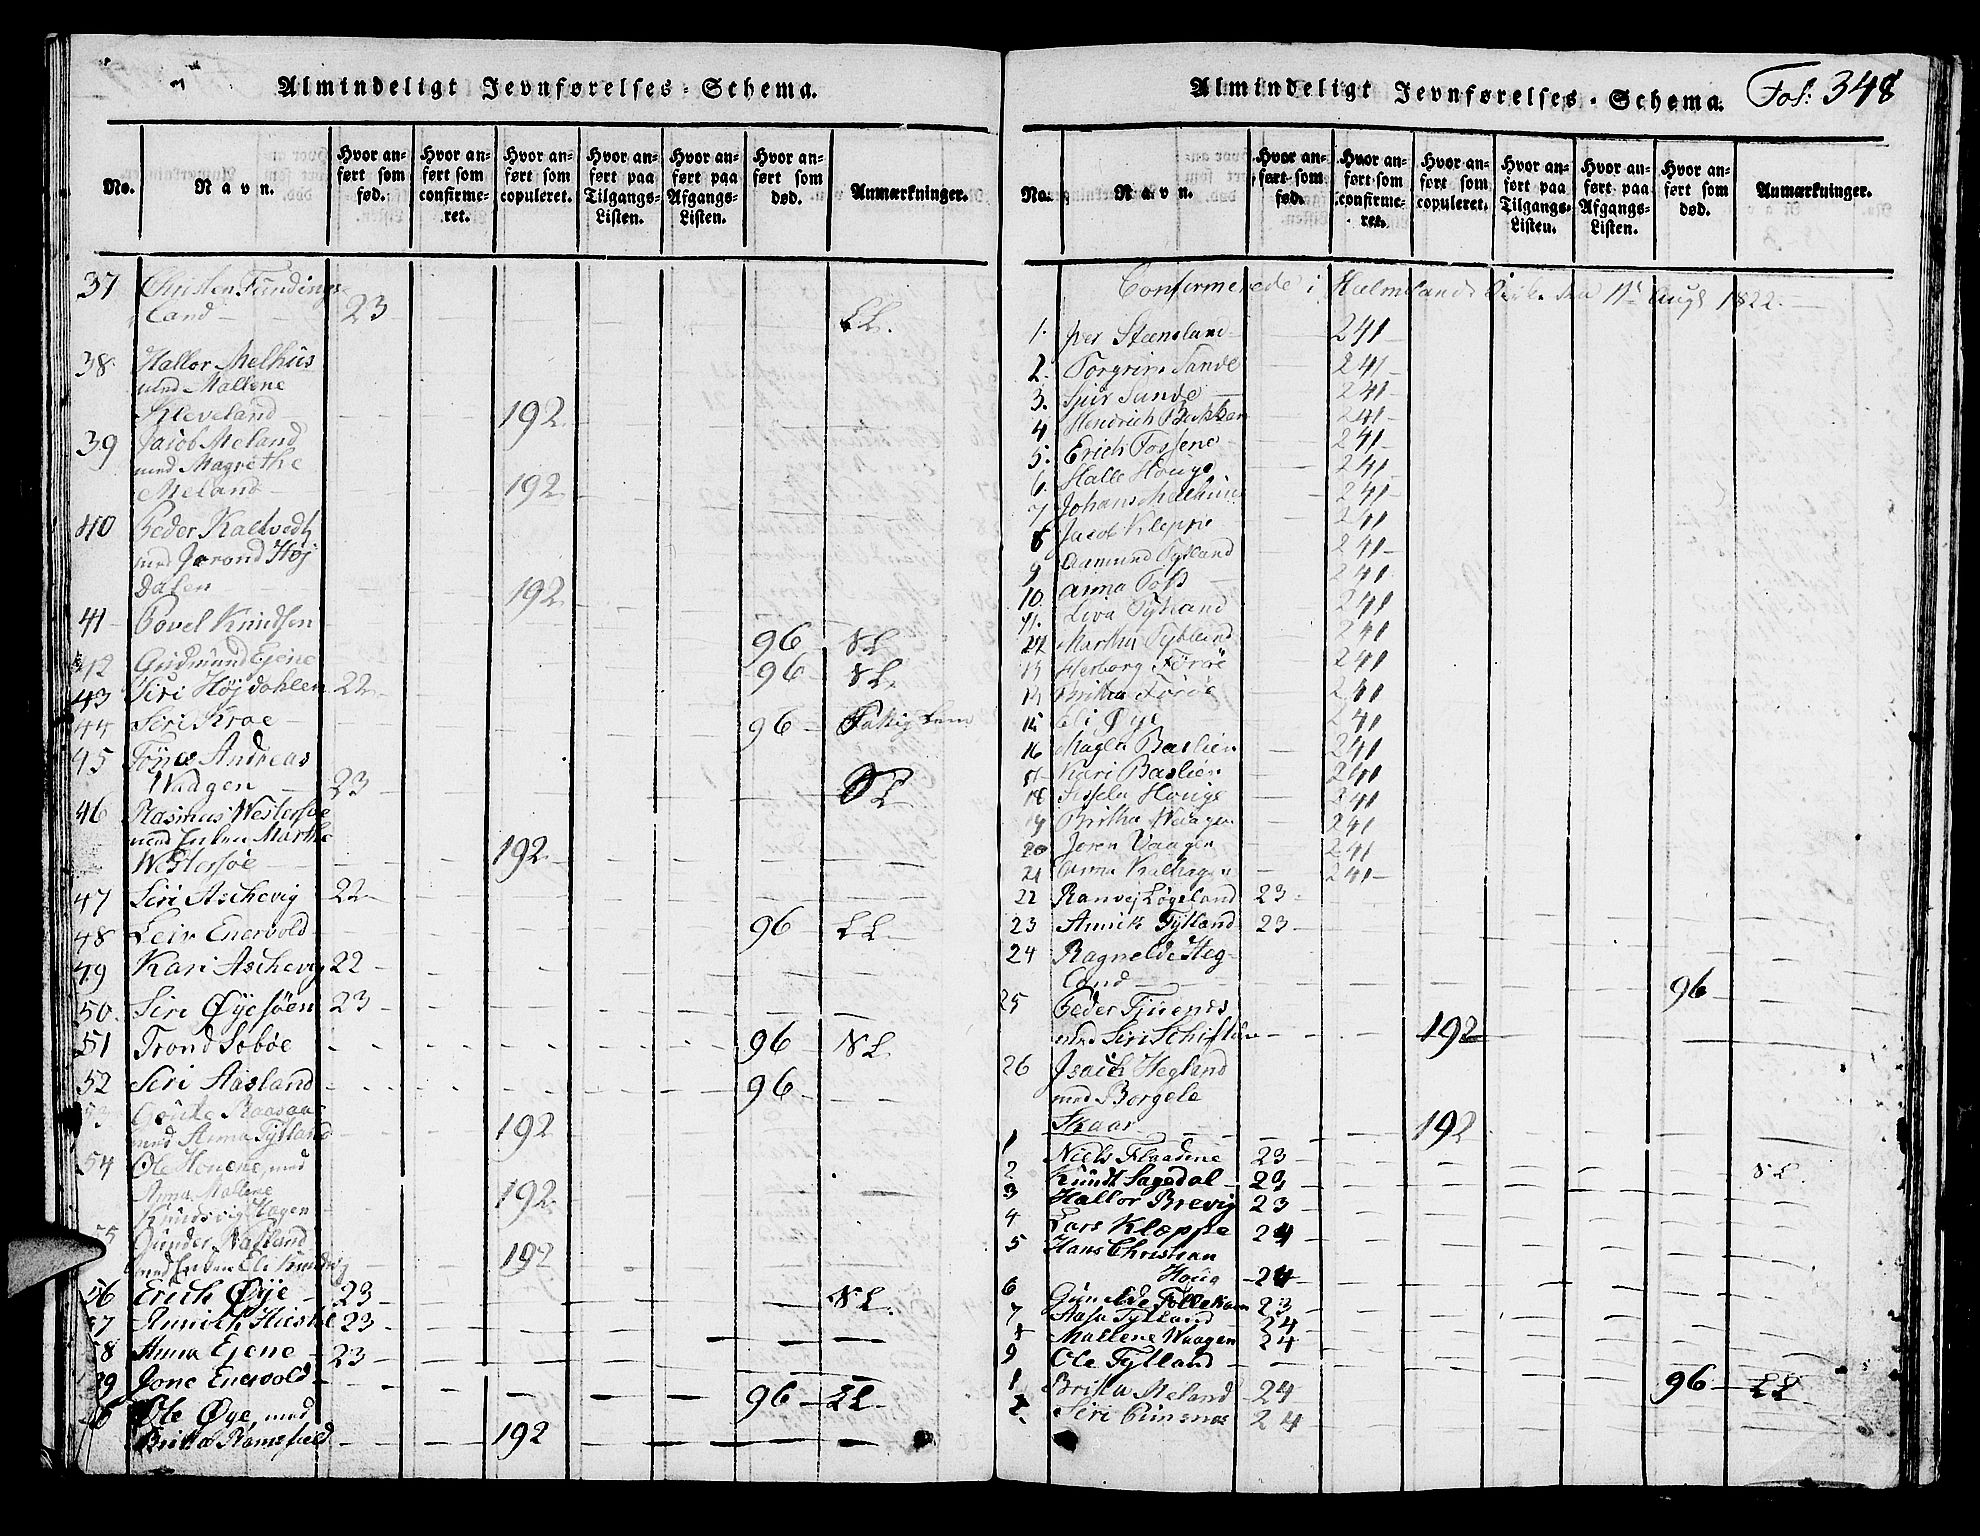 Almindeligt Jevnførelses-Schema.
No. Navn. Hvor anført som fød. Hvor anført som confirmeret. Hvor anført som copuleret. Hvor anført paa Tilgangs-Listen. Hvor anført paa Afgangs-Listen. Hvor anført som død. Anmærkninger.
37 Christen Fundings-
land 23 LL.
38 Hallor Melhus
med Mallene
Kleveland 192
39 Jacob Meland
med Magrethe
Meland 192
40 Peder Kaltvedt
med Jorond Høj
dalen 192
41 Povel Knudsen 96 NL
42 Gudmund Ejene 96 NL.
43 Siri Højdahlen 22
44 Siri Kroe 96 Fattig Lem
45 Tønes Andreas
Waagen 23 NL
46 Rasmus Westersøe
med Enken Marthe
Westersøe 192
47 Siri Aschevig 22
48 Leiv Enervold 96 LL
49 Kari Aschevig 22
50. Siri Øyesøen 23
51 Trond Sobøe 96 NL
52 Siri Aasland 96
53 Goute Raasaa
med Anna Tytland 192
54 Ole Houene med
Anna Mallene
Knudsvig Hagen 192
55 Gunder Natland
med Enken Eli Knudsvig 192
56 Erich Øye 23 NL.
57 23
58 Anna Ejene 23
59 Jone Enervold 96 LL
Ole Øye med
Britha Ramsfield 192
Almindeligt Jevnførelses-Schema. Fol: 348
No. Navn. Hvor anført som fød. Hvor anført som confirmeret. Hvor anført som copuleret. Hvor anført paa Tilgangs-Listen. Hvor anført paa Afgangs-Listen. Hvor anført som død. Anmærkninger.
Confirmerede i Hielmelands Kirke den 11te Augt 1822.
1. Per Steensland 241
2. Torgrim Sande 241
3. Siur Sande 241
4 Hendrich Bakken 241
5. Erich Fossene 241
6. Halle Houge 241
7 Johans Malhus 241
8 Jacob Kleppe 241
9 Aamund Tytland 241
10. Anna Foss 241
11. Liva Tytland 241
12 Martha Tytland 241
13 Herborg Førøe 241
14 Britha Førøe 241
15 Eli Øye 241
16 Magla Baslien 241
17 Kari Baslien 241
18 Sissela Houge 241
19 Britha Waagen 241
20 Joren Vaagen 241
21 Anna 241
22 Ranvej Løgeland 23
23 Annik Tytland 23
24 Ragnelde Heg-
land 96
25 Peder Tjuenes
med Siri Schiftun 192
26 Isach Hegland
med Borgele
Skaar 192
1 Niels Flaadene 23
2. Knudt Sagedal 23 NL.
3 Hallor Brevig 23
4 Lars Kloppe 24
5 Hans Christian
Houg 24
6 Gunelde Follekam 23
7 Aasa Tytland 24
8 Mallene Waagen 24
9 Ole Tytland 96 LL
1 Britha Meland 24
2. Siri Funsnæs 24